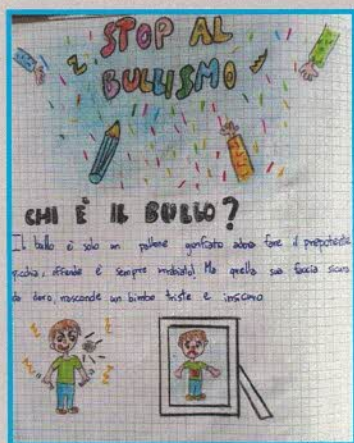 STOP AL
BULLISMO
CHI È IL BULLO?
Il bullo è solo un pallone gonfiato adora fare il prepotente
picchia, offende è sempre Ma quella sua faccia sicura
da duro, nasconde un bimbo triste e insicuro